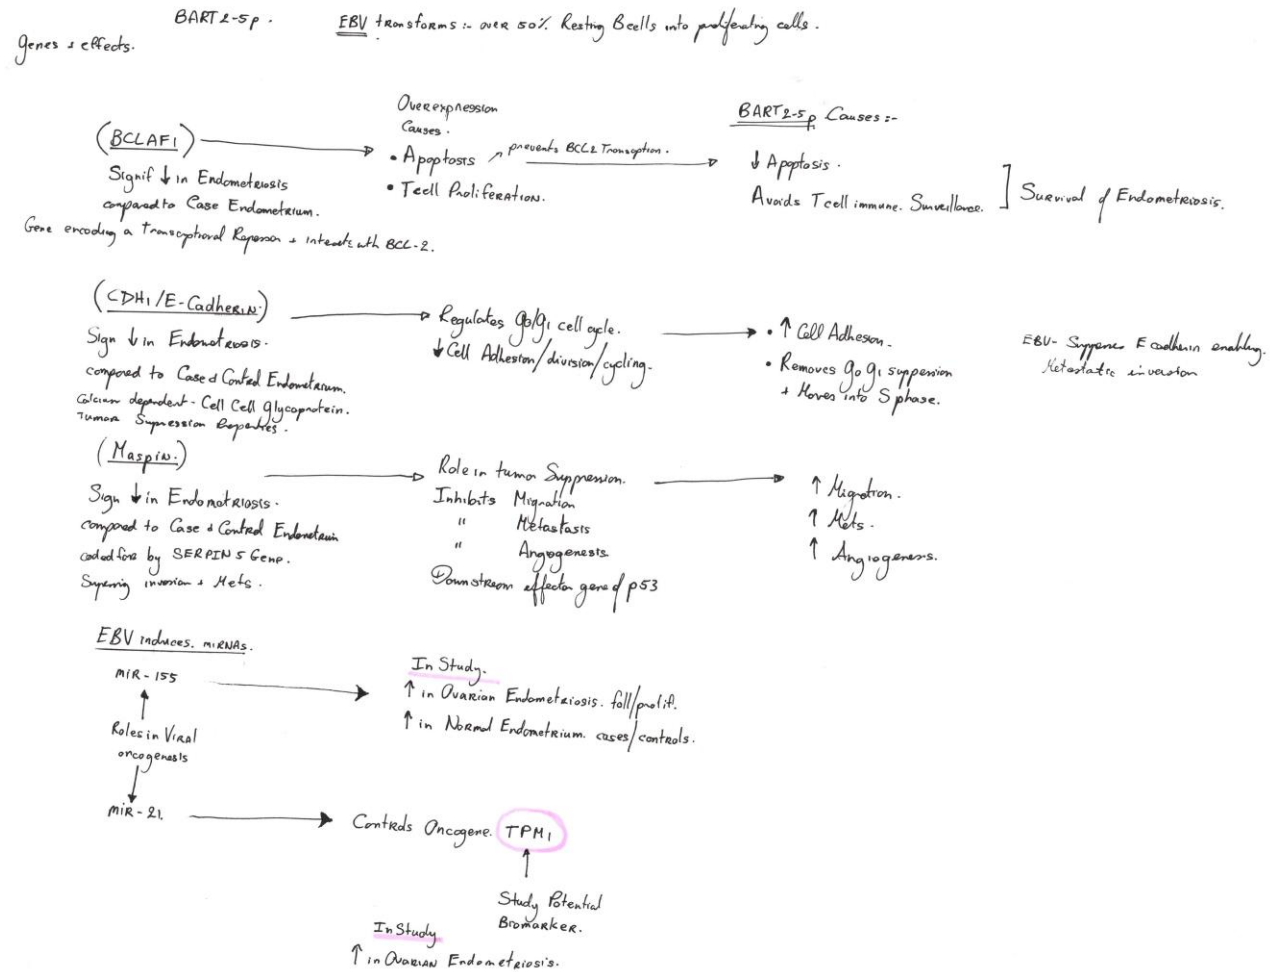 BART2-5p.
EBV transforms :- over 50% Resting Bcells into proliferating cells.
Genes & effects.
(BCLAF1)
Signif ↓ in Endometriosis
compared to Case Endometrium.
Gene encoding a transcriptional Repressor + interacts with BCL-2.
Overexpression
Causes.
• Apoptosis
• Tcell Proliferation.
prevents BCL2 Transcption.
BART2-5p Causes :-
↓ Apoptosis.
Avoids Tcell immune. Surveillance.
] Survival of Endometriosis.
(CDH1/E-Cadherin.)
Sign ↓ in Endometriosis.
compared to Case & Control Endometrium.
Calcium dependent - Cell Cell glycoprotein.
Tumor Supression Properties.
Regulates g0/g1 cell cycle.
↓ Cell Adhesion/division/cycling.
• ↑ Cell Adhesion.
• Removes g0 g1 suppension
+ Moves into S phase.
EBV- Suppress E cadherin enabling.
Metastatic invasion
(Maspin.)
Sign ↓ in Endometriosis.
compared to Case & Control Endometrium
coded for by SERPIN5 Gene.
Supressing invasion + Mets.
Role in tumor Suppression.
Inhibits Migration
" Metastasis
" Angogenesis.
Downstream effector gene of p53
↑ Migration.
↑ Mets.
↑ Angiogenesis.
EBV induces. miRNAs.
miR-155
Roles in Viral
oncogenesis
miR-21.
In Study.
↑ in Ovarian Endometriosis. foll/prolif.
↑ in Normal Endometrium. cases/controls.
Controls Oncogene. TPM1
Study Potential
Biomarker.
In Study
↑ in Ovarian Endometriosis.